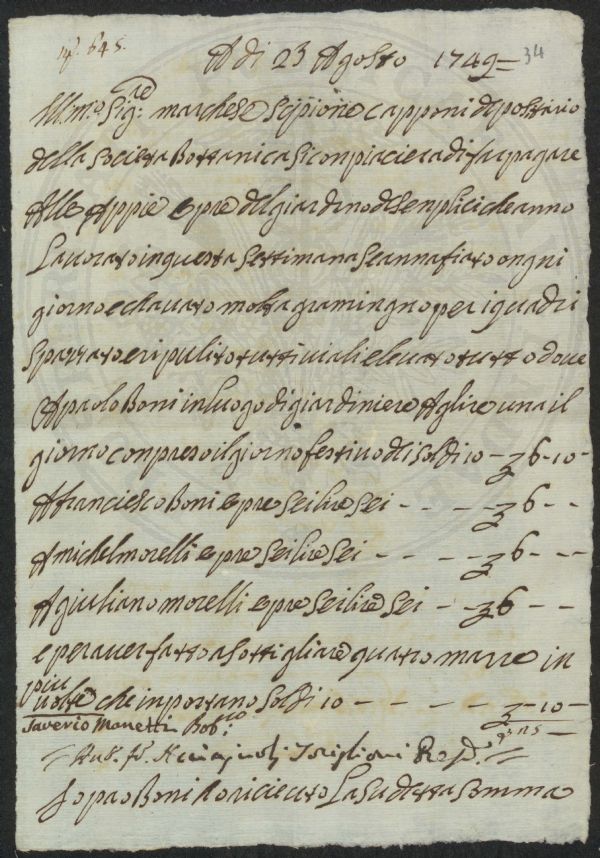 A di 23 Agosto 1749 = 34
Ill.mo Sig:re marchese Scipione capponi depositario
della Societa Bottanica Si conpiaciera di far pagare
Alle Appie opre del giardino de Senplici che anno
Lauorato in questa Settimana Se anno afiato ongni
giorno e chauato molta gramingno per i quadri
Spazzato e ripulito tutti uiali e leuato tutto doue
A paolo Boni in luogo di giardiniere A glire una il
giorno conpreso il giorno festiuo di Soldi 10 - 6 - 10 -
A franciescho Boni opre Sei lire Sei - - - 6 - -
A michel morelli opre Sei lire Sei - - - 6 - -
A giuliano morelli opre Sei lire Sei - 6 - -
e per auer fatto asottigliare quatro marre in
piu
uolte che inportano Soldi 10 - - - - 10 -
Saverio Manetti Bot:co
Io pao Boni o riceuuto La Sudetta Somma